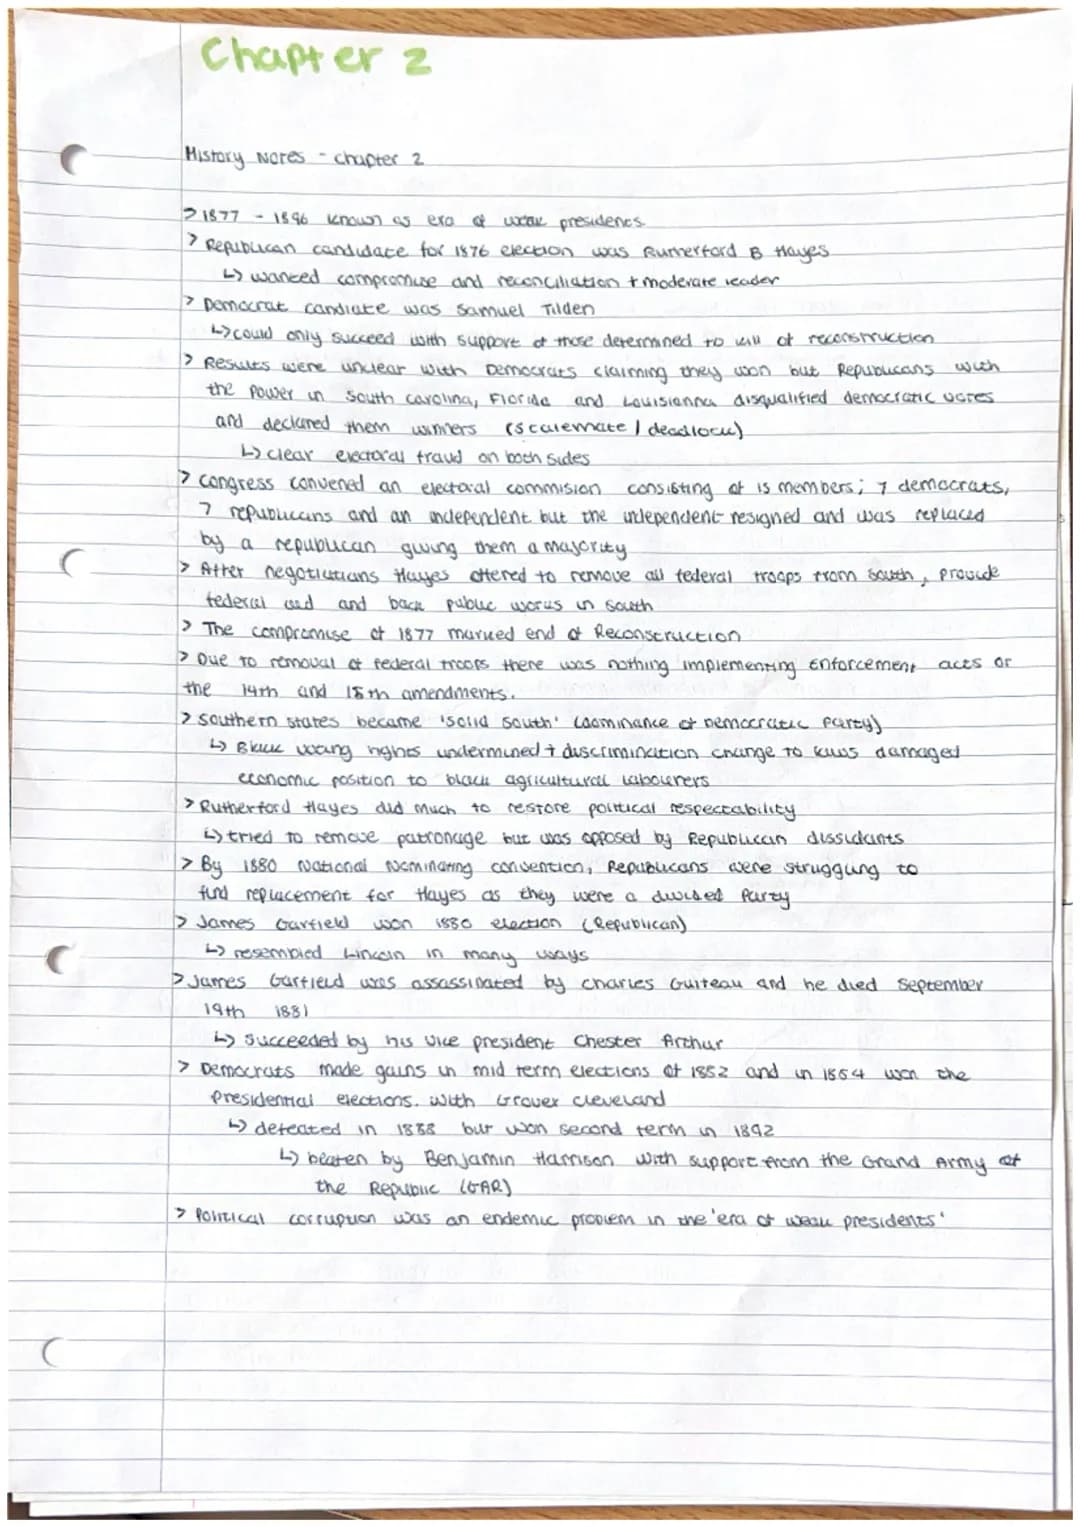 Chapter 2
History Notes - chapter 2
> 1877 - 1896 known as era of weak presidents
> Republican candidate for 1876 election was Rutherford B Hayes
↳ wanted compromise and reconciliation + moderate leader
> Democrat candiate was Samuel Tilden
↳ could only succeed with support of those determined to kill of reconstruction
> Results were unclear with Democrats claiming they won but Republicans with
the power in South Carolina, Florida and Louisianna disqualified democratic votes
and declared them winners (stalemate / deadlock)
↳ clear electoral fraud on both sides
> Congress convened an electoral commision consisting of 15 members; 7 democrats,
7 republicans and an independent but the independent resigned and was replaced
by a republican giving them a majority
> After negotiations Hayes offered to remove all federal troops from South, provide
federal aid and back public works in South
> The compromise of 1877 marked end of Reconstruction
> Due to removal of federal troops there was nothing implementing Enforcement acts or
the 14th and 15th amendments.
> Southern states became 'solid South' (dominance of Democratic Party)
↳ Black voting rights undermined + discrimination change to laws damaged
economic position to black agricultural labourers
> Rutherford Hayes did much to restore political respectability
↳ tried to remove patronage but was opposed by Republican dissidants
> By 1880 National Nominating convention, Republicans were struggling to
find replacement for Hayes as they were a divided Party
> James Garfield won 1880 election (Republican)
↳ resembled Lincoln in many ways
> James Garfield was assassinated by Charles Guiteau and he died September
19th 1881
↳ Succeeded by his vice president Chester Arthur
> Democrats made gains in mid term elections of 1882 and in 1884 won the
Presidential elections. With Grover Cleveland
↳ defeated in 1888 but won second term in 1892
↳ beaten by Benjamin Harrison with support from the Grand Army of
the Republic (GAR)
> Political corruption was an endemic problem in the 'era of weak presidents'